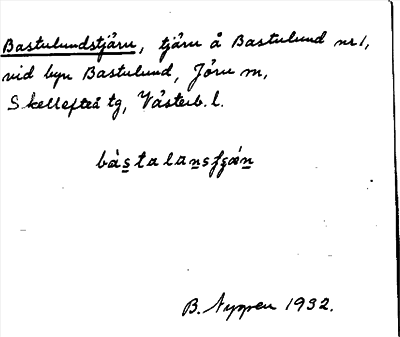 Bastulundstjärn, tjärn å Bastulund nr 1,
vid byn Bastulund, Jörn m,
Skellefteå tg, Västerb. l.
bàs̲talan̲sʃɡǽn̲
B. Nyppen 1932.